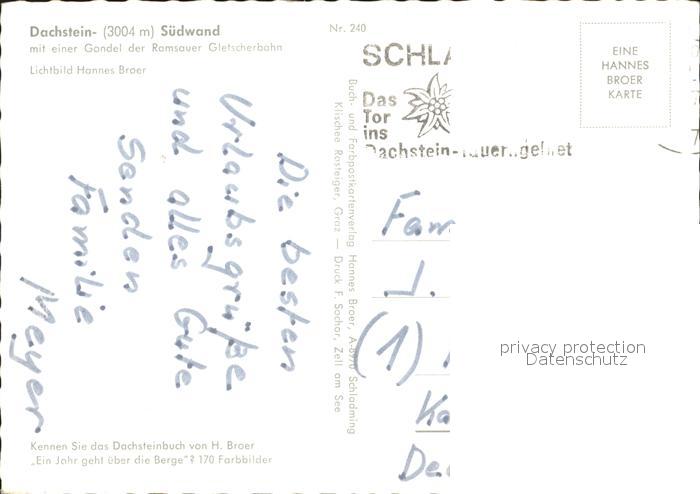 Dachstein- (3004 m) Südwand
mit einer Gondel der Ramsauer Gletscherbahn
Lichtbild Hannes Broer
Nr. 240
Die besten
Urlaubsgrüße
und alles Gute
senden
Familie
Meyer
Kennen Sie das Dachsteinbuch von H. Broer
„Ein Jahr geht über die Berge"? 170 Farbbilder
Buch- und Farbpostkartenverlag Hannes Broer, A-8970 Schladming
Klischee Rosteiger, Graz — Druck F. Sochor, Zell am See
SCHLA
Das
Tor
ins
EINE
HANNES
BROER
KARTE
Fam
J.
(1)
Ka
De
privacy protection
Datenschutz